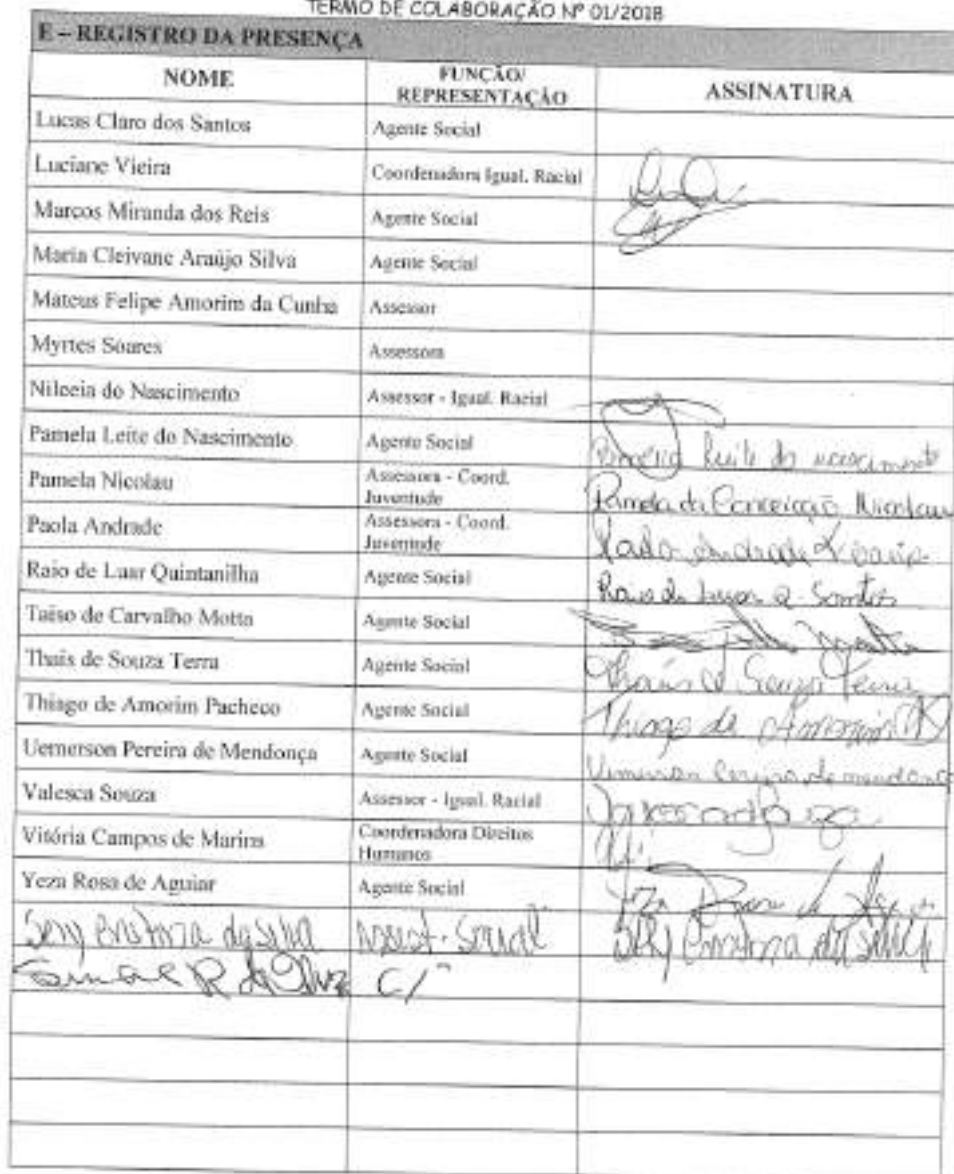 TERMO DE COLABORAÇÃO Nº 01/2018
E – REGISTRO DA PRESENÇA
NOME FUNÇÃO/ REPRESENTAÇÃO ASSINATURA
Lucas Claro dos Santos Agente Social
Luciane Vieira Coordenadora Igual. Racial
Marcos Miranda dos Reis Agente Social
Maria Cleivane Araújo Silva Agente Social
Mateus Felipe Amorim da Cunha Assessor
Myrtes Soares Assessora
Nilceia do Nascimento Assessor - Igual. Racial
Pamela Leite do Nascimento Agente Social Pamela Leite do nascimento
Pamela Nicolau Assessora - Coord. Juventude Pamela da Conceição Nicolau
Paola Andrade Assessora - Coord. Juventude Paola Andrade
Raio de Luar Quintanilha Agente Social Raio de Luar Q. Santos
Taiso de Carvalho Motta Agente Social
Thais de Souza Terra Agente Social Thais d Souza Terra
Thiago de Amorim Pacheco Agente Social Thiago de Amorim
Uemerson Pereira de Mendonça Agente Social Uemerson Pereira de mendonça
Valesca Souza Assessor - Igual. Racial
Vitória Campos de Marins Coordenadora Direitos Humanos
Yeza Rosa de Aguiar Agente Social Yeza Rosa de Aguiar
da Silva Assist. Social da Silva